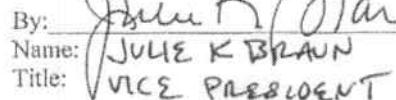 By:
Name: JULIE K BRAUN
Title: VICE PRESIDENT